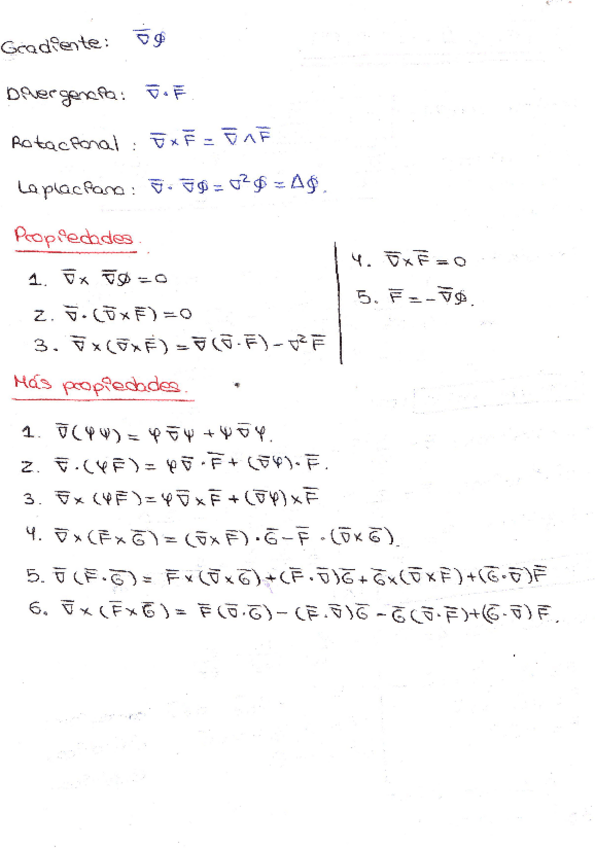 Gradiente: ∇̅φ
Divergencia: ∇̅·F̅
Rotacional: ∇̅×F̅ = ∇̅∧F̅
Laplaciano: ∇̅·∇̅φ = ∇²φ = Δφ.
Propiedades.
1. ∇̅× ∇̅φ = 0
2. ∇̅·(∇̅×F̅) = 0
3. ∇̅×(∇̅×F̅) = ∇̅(∇̅·F̅) - ∇²F̅
4. ∇̅×F̅ = 0
5. F̅ = -∇̅φ.
Más propiedades.
1. ∇̅(φψ) = φ∇̅ψ + ψ∇̅φ.
2. ∇̅·(φF̅) = φ∇̅·F̅ + (∇̅φ)·F̅.
3. ∇̅×(φF̅) = φ∇̅×F̅ + (∇̅φ)×F̅
4. ∇̅×(F̅×G̅) = (∇̅×F̅)·G̅ - F̅·(∇̅×G̅).
5. ∇̅(F̅·G̅) = F̅×(∇̅×G̅) + (F̅·∇̅)G̅ + G̅×(∇̅×F̅) + (G̅·∇̅)F̅
6. ∇̅×(F̅×G̅) = F̅(∇̅·G̅) - (F̅·∇̅)G̅ - G̅(∇̅·F̅) + (G̅·∇̅)F̅.